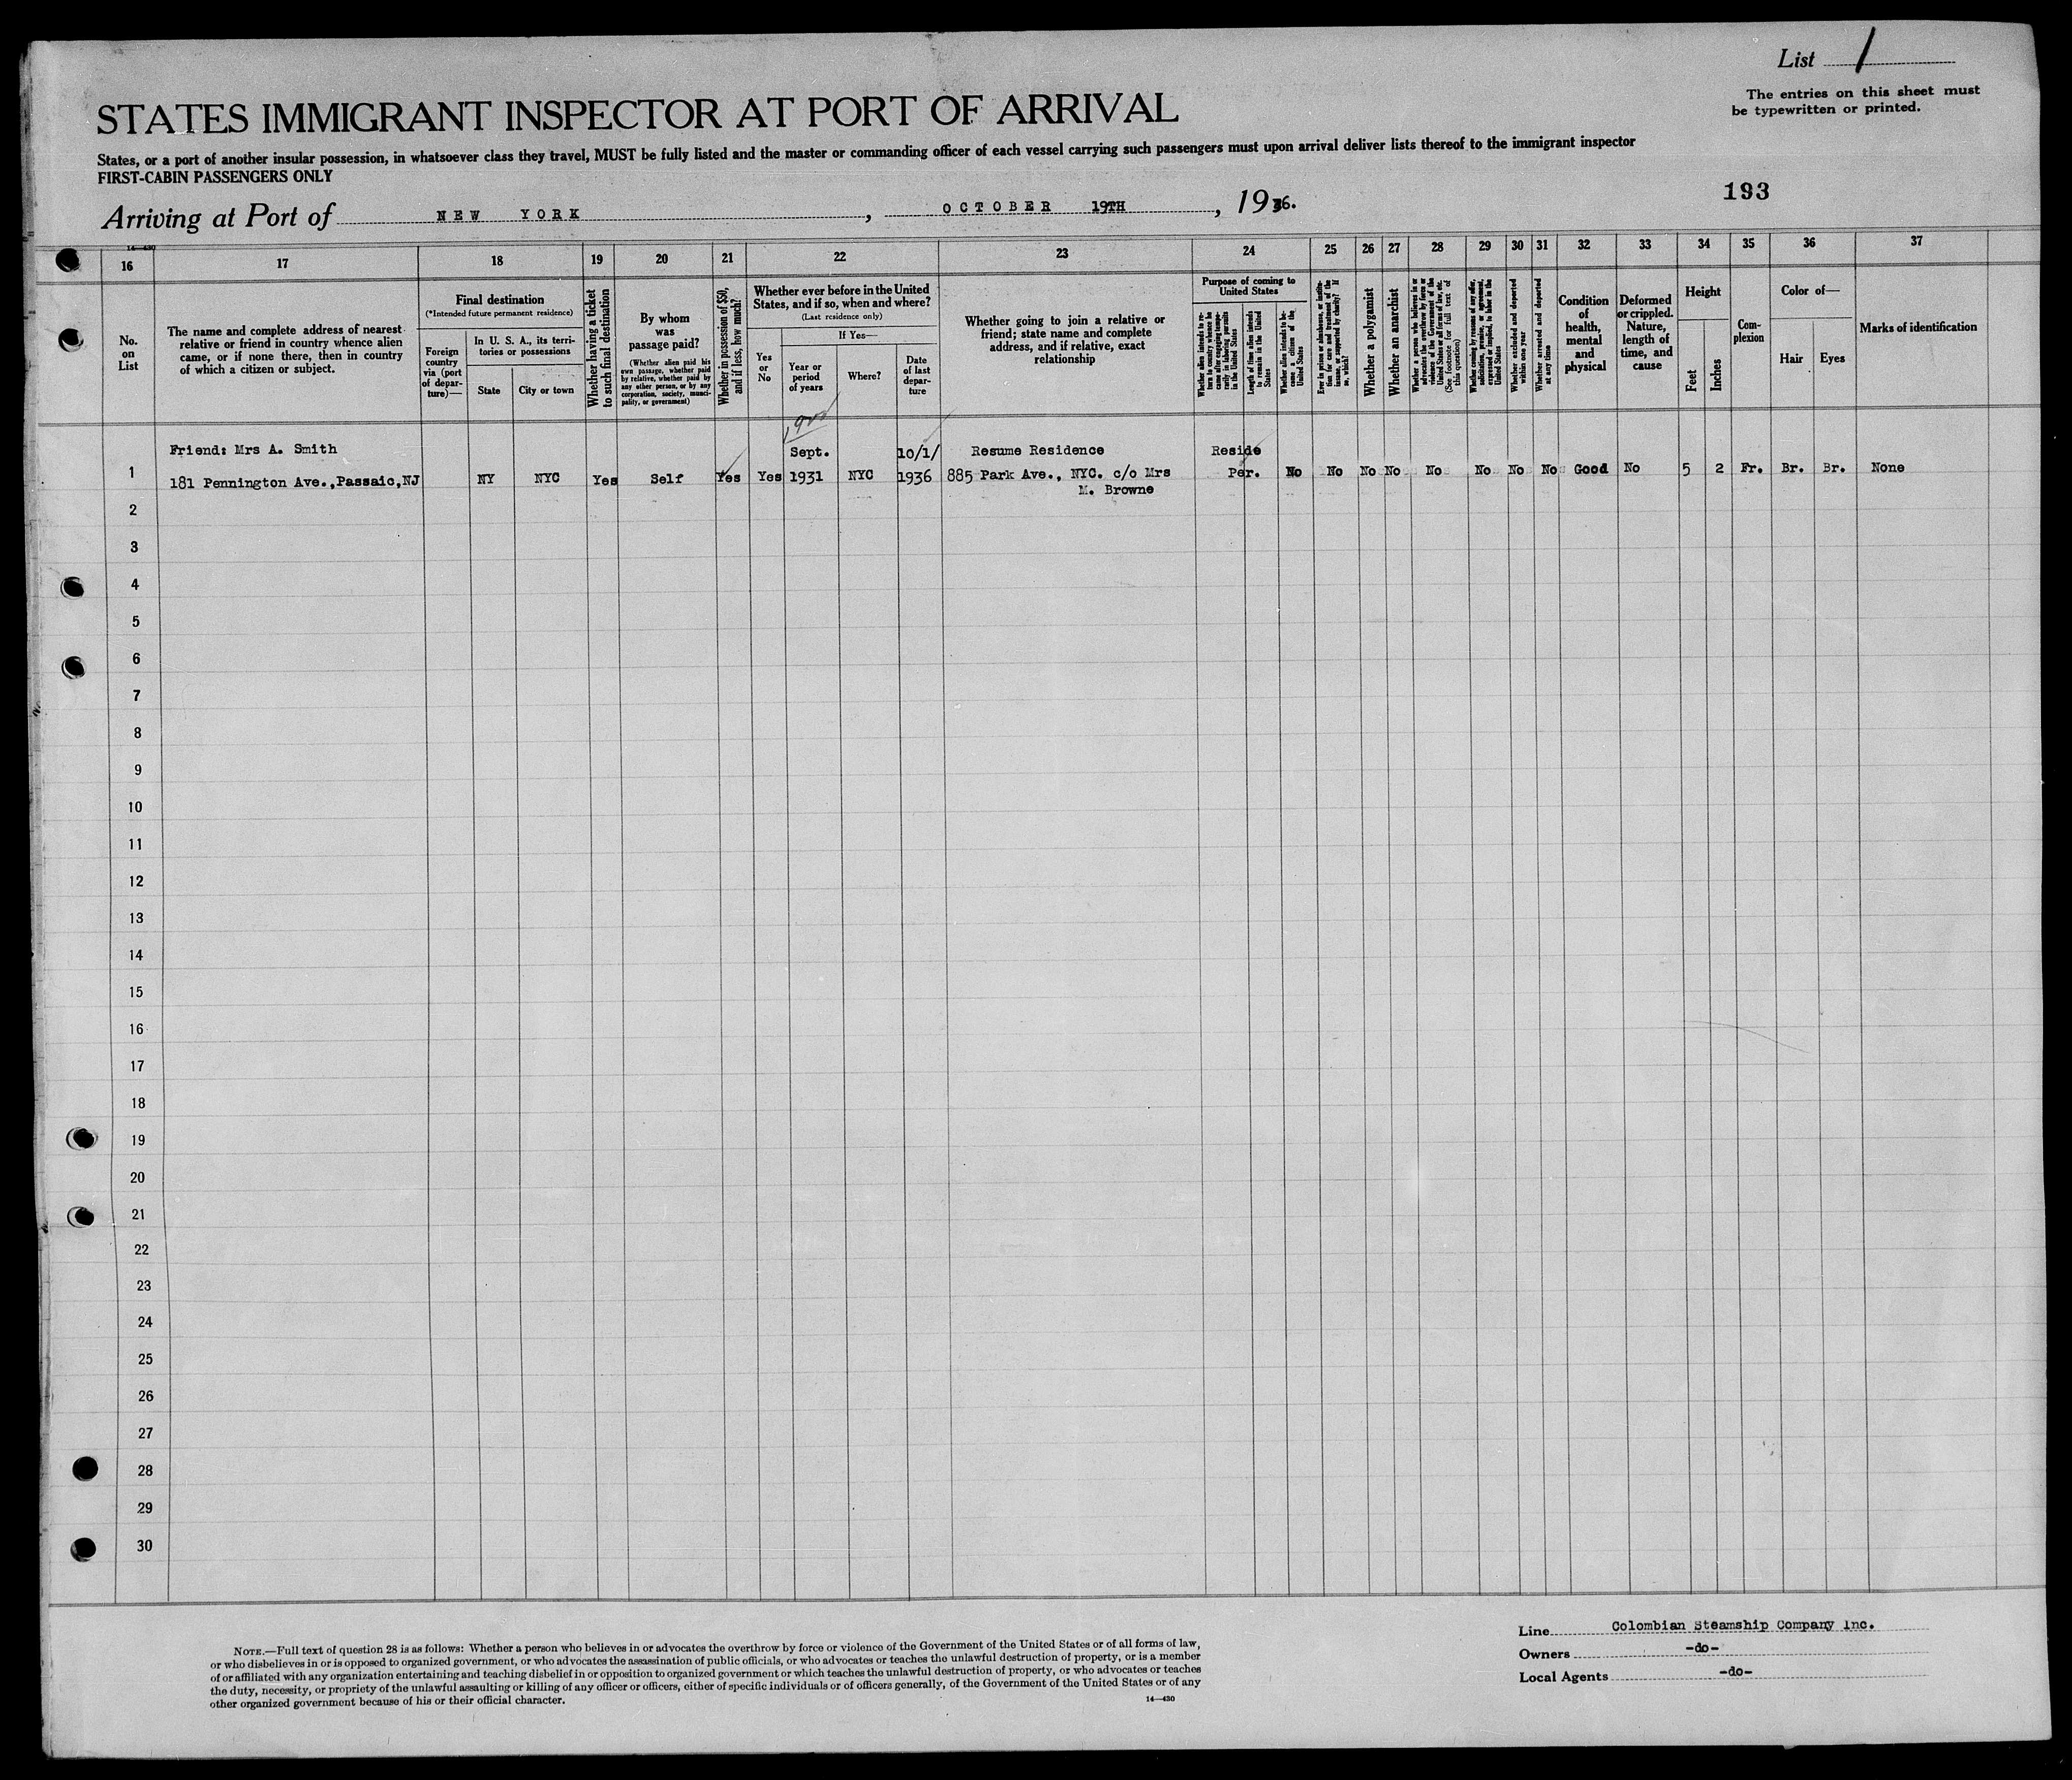 List 1
The entries on this sheet must
be typewritten or printed.
STATES IMMIGRANT INSPECTOR AT PORT OF ARRIVAL
States, or a port of another insular possession, in whatsoever class they travel, MUST be fully listed and the master or commanding officer of each vessel carrying such passengers must upon arrival deliver lists thereof to the immigrant inspector
FIRST-CABIN PASSENGERS ONLY
193
Arriving at Port of NEW YORK, OCTOBER 19TH, 1936.
14—430
16 17 18 19 20 21 22 23 24 25 26 27 28 29 30 31 32 33 34 35 36 37
No.
on
List
The name and complete address of nearest
relative or friend in country whence alien
came, or if none there, then in country
of which a citizen or subject.
Final destination
(*Intended future permanent residence)
Foreign
country
via (port
of depar-
ture)—
In U. S. A., its terri-
tories or possessions
State
City or town
Whether having a ticket
to such final destination
By whom
was
passage paid?
(Whether alien paid his
own passage, whether paid
by relative, whether paid by
any other person, or by any
corporation, society, munici-
pality, or government)
Whether in possession of $50,
and if less, how much?
Whether ever before in the United
States, and if so, when and where?
(Last residence only)
Yes
or
No
If Yes—
Year or
period
of years
Where?
Date
of last
depar-
ture
Whether going to join a relative or
friend; state name and complete
address, and if relative, exact
relationship
Purpose of coming to
United States
Whether alien intends to re-
turn to country whence he
came after engaging tempo-
rarily in laboring pursuits
in the United States
Length of time alien intends
to remain in the United
States
Whether alien intends to be-
come a citizen of the
United States
Ever in prison or almshouse, or institu-
tion for care and treatment of the
insane, or supported by charity? If
so, which?
Whether a polygamist
Whether an anarchist
Whether a person who believes in or
advocates the overthrow by force or
violence of the Government of the
United States or all forms of law, etc.
(See footnote for full text of
this question)
Whether coming by reason of any offer,
solicitation, promise, or agreement,
expressed or implied, to labor in the
United States
Whether excluded and deported
within one year
Whether arrested and deported
at any time
Condition
of
health,
mental
and
physical
Deformed
or crippled.
Nature,
length of
time, and
cause
Height
Feet
Inches
Com-
plexion
Color of—
Hair
Eyes
Marks of identification
Friend: Mrs A. Smith Sept. 10/1/ Resume Residence Reside
1 181 Pennington Ave.,Passaic,NJ NY NYC Yes Self Yes Yes 1931 NYC 1936 885 Park Ave., NYC. c/o Mrs Per. No No No No No No No No Good No 5 2 Fr. Br. Br. None
M. Browne
2
3
4
5
6
7
8
9
10
11
12
13
14
15
16
17
18
19
20
21
22
23
24
25
26
27
28
29
30
NOTE.—Full text of question 28 is as follows: Whether a person who believes in or advocates the overthrow by force or violence of the Government of the United States or of all forms of law,
or who disbelieves in or is opposed to organized government, or who advocates the assassination of public officials, or who advocates or teaches the unlawful destruction of property, or is a member
of or affiliated with any organization entertaining and teaching disbelief in or opposition to organized government or which teaches the unlawful destruction of property, or who advocates or teaches
the duty, necessity, or propriety of the unlawful assaulting or killing of any officer or officers, either of specific individuals or of officers generally, of the Government of the United States or of any
other organized government because of his or their official character.
14—430
Line Colombian Steamship Company Inc.
Owners -do-
Local Agents -do-